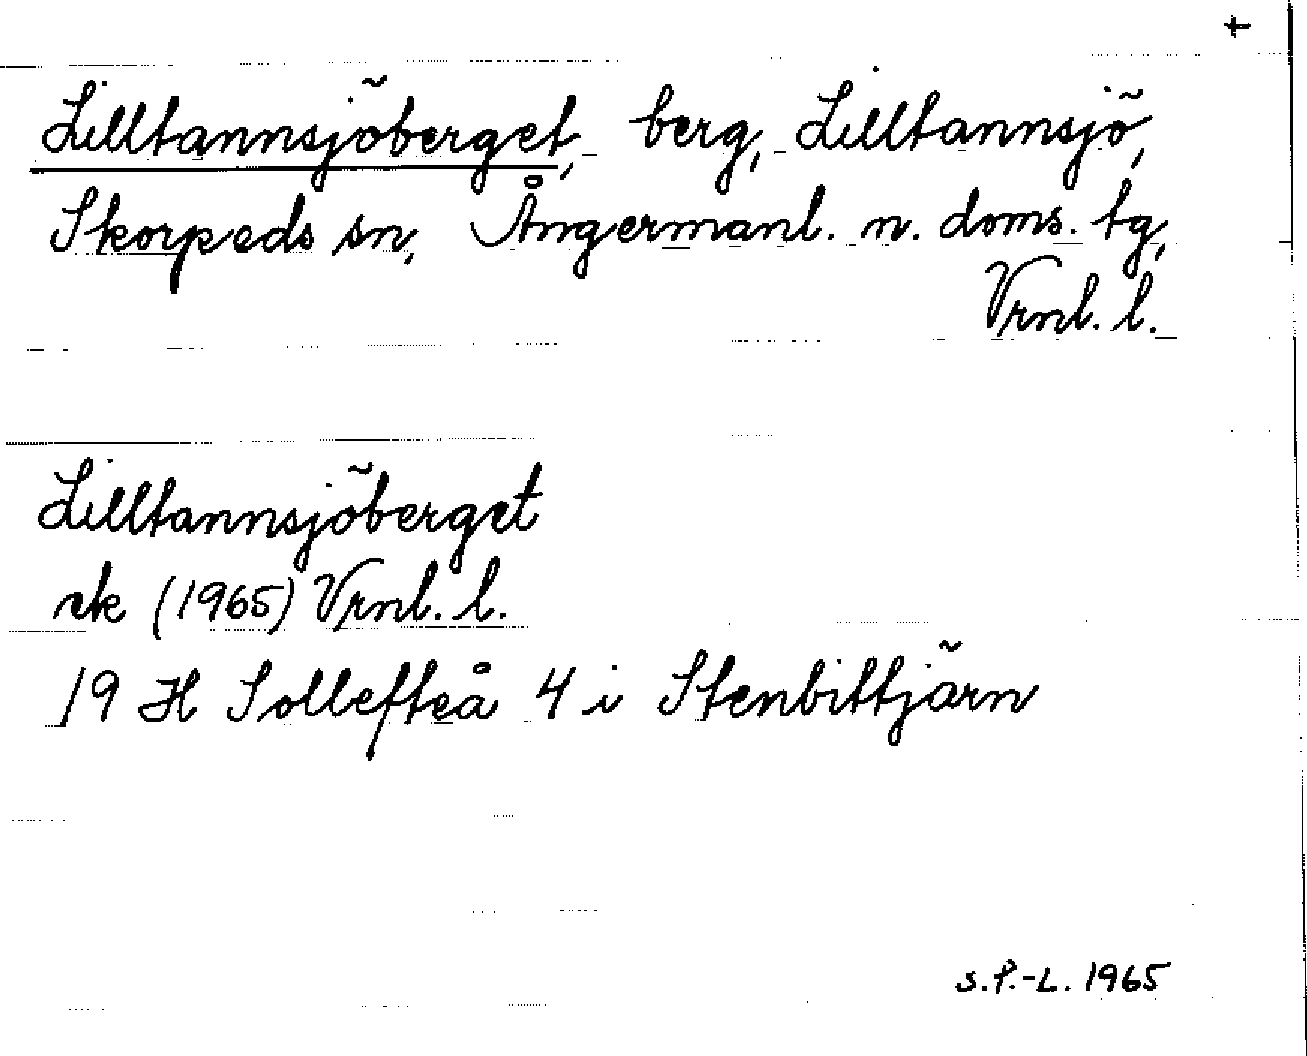 +
Lilltannsjöberget, berg, Lilltannsjö,
Skorpeds sn, Ångermanl. n. doms. tg,
Vrnl. l.
Lilltannsjöberget
ek (1965) Vrnl. l.
19 H Sollefteå 4 i Stenbittjärn
S.P.-L. 1965